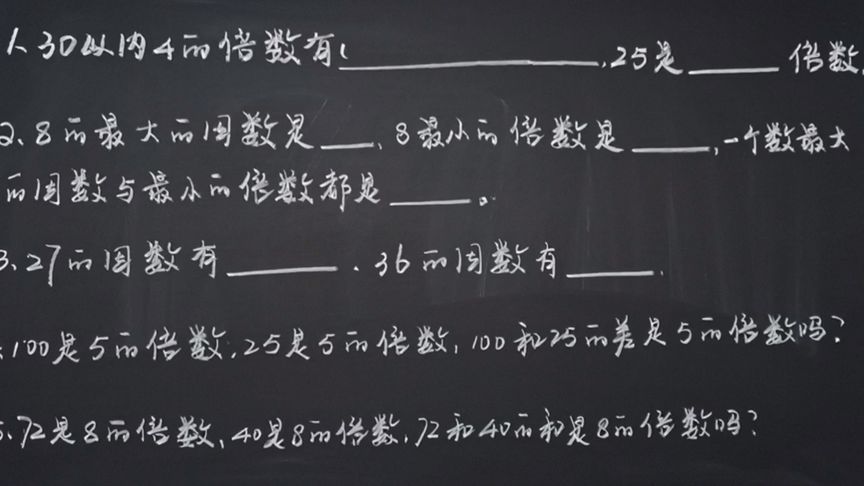 1、30以内4的倍数有(____________,25是____倍数,
2、8的最大的因数是___、8最小的倍数是____,一个数最大
的因数与最小的倍数都是____。
3、27的因数有______.36的因数有_____.
.100是5的倍数,25是5的倍数,100和25的差是5的倍数吗?
5、72是8的倍数、40是8的倍数,72和40的和是8的倍数吗?